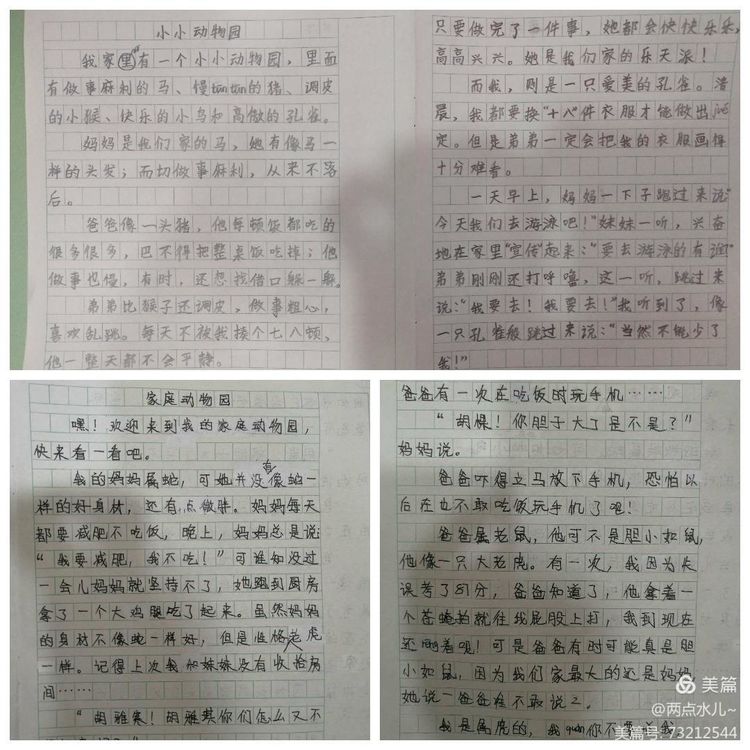 小小动物园
我家里有一个小小动物园，里面
有做事麻利的马、慢tūn tūn的猪、调皮
的小猴、快乐的小鸟和高傲的孔雀。
妈妈是我们家的马，她有像马一
样的头发；而切做事麻利，从来不落
后。
爸爸像一头猪，他每顿饭都吃的
很多很多，巴不得把整桌饭吃掉；他
做事也慢，有时，还想找借口躲一躲。
弟弟比猴子还调皮，做事粗心，
喜欢乱跳。每天不被我揍个七八顿，
他一整天都不会平静。
只要做完了一件事，她都会快快乐乐，
高高兴兴。她是我们家的乐天派！
而我，则是一只爱美的孔雀。清
晨，我都要换“十八”件衣服才能做出决
定。但是弟弟一定会把我的衣服画得
十分难看。
一天早上，妈妈一下子跑过来说“
今天我们去游泳吧！”妹妹一听，兴奋
地在家里“宣传”起来：“要去游泳的有谁”
弟弟刚刚还打呼噜，这一听，跳过来
说：“我要去！我要去！”我听到了，像
一只孔雀般跳过来说：“当然不能少了
我！”
家庭动物园
嘿！欢迎来到我的家庭动物园，
快来看一看吧。
我的妈妈属蛇，可她并没有像蛇一
样的好身材，还有点微胖。妈妈每天
都要减肥不吃饭，晚上，妈妈总是说
“我要减肥，我不吃！”可谁知没过
一会儿妈妈就坚持不了，她跑到厨房
拿了一个大鸡腿吃了起来。虽然妈妈
的身材不像蛇一样好，但是性格老虎
一样。记得上次我和妹妹没有收拾房
间……
“胡雅朱！胡雅琪你们怎么又不
爸爸有一次在吃饭时玩手机……
“胡！你胆子大了是不是？”
妈妈说。
爸爸吓得立马放下手机，恐怕以
后在也不敢吃饭玩手机了吧！
爸爸属老鼠，他可不是胆小如鼠，
他像一只大老虎。有一次，我因为失
误考了81分，爸爸知道了，他拿着一
个苍蝇拍就往我屁股上打，我到现在
还疼着呢！可是爸爸有时可能真是胆
小如鼠，因为我们家最大的还是妈妈
她说一爸爸准不敢说二。
我是属虎的，我quàn你不要惹我
美篇
@两点水儿~
美篇号:73212544